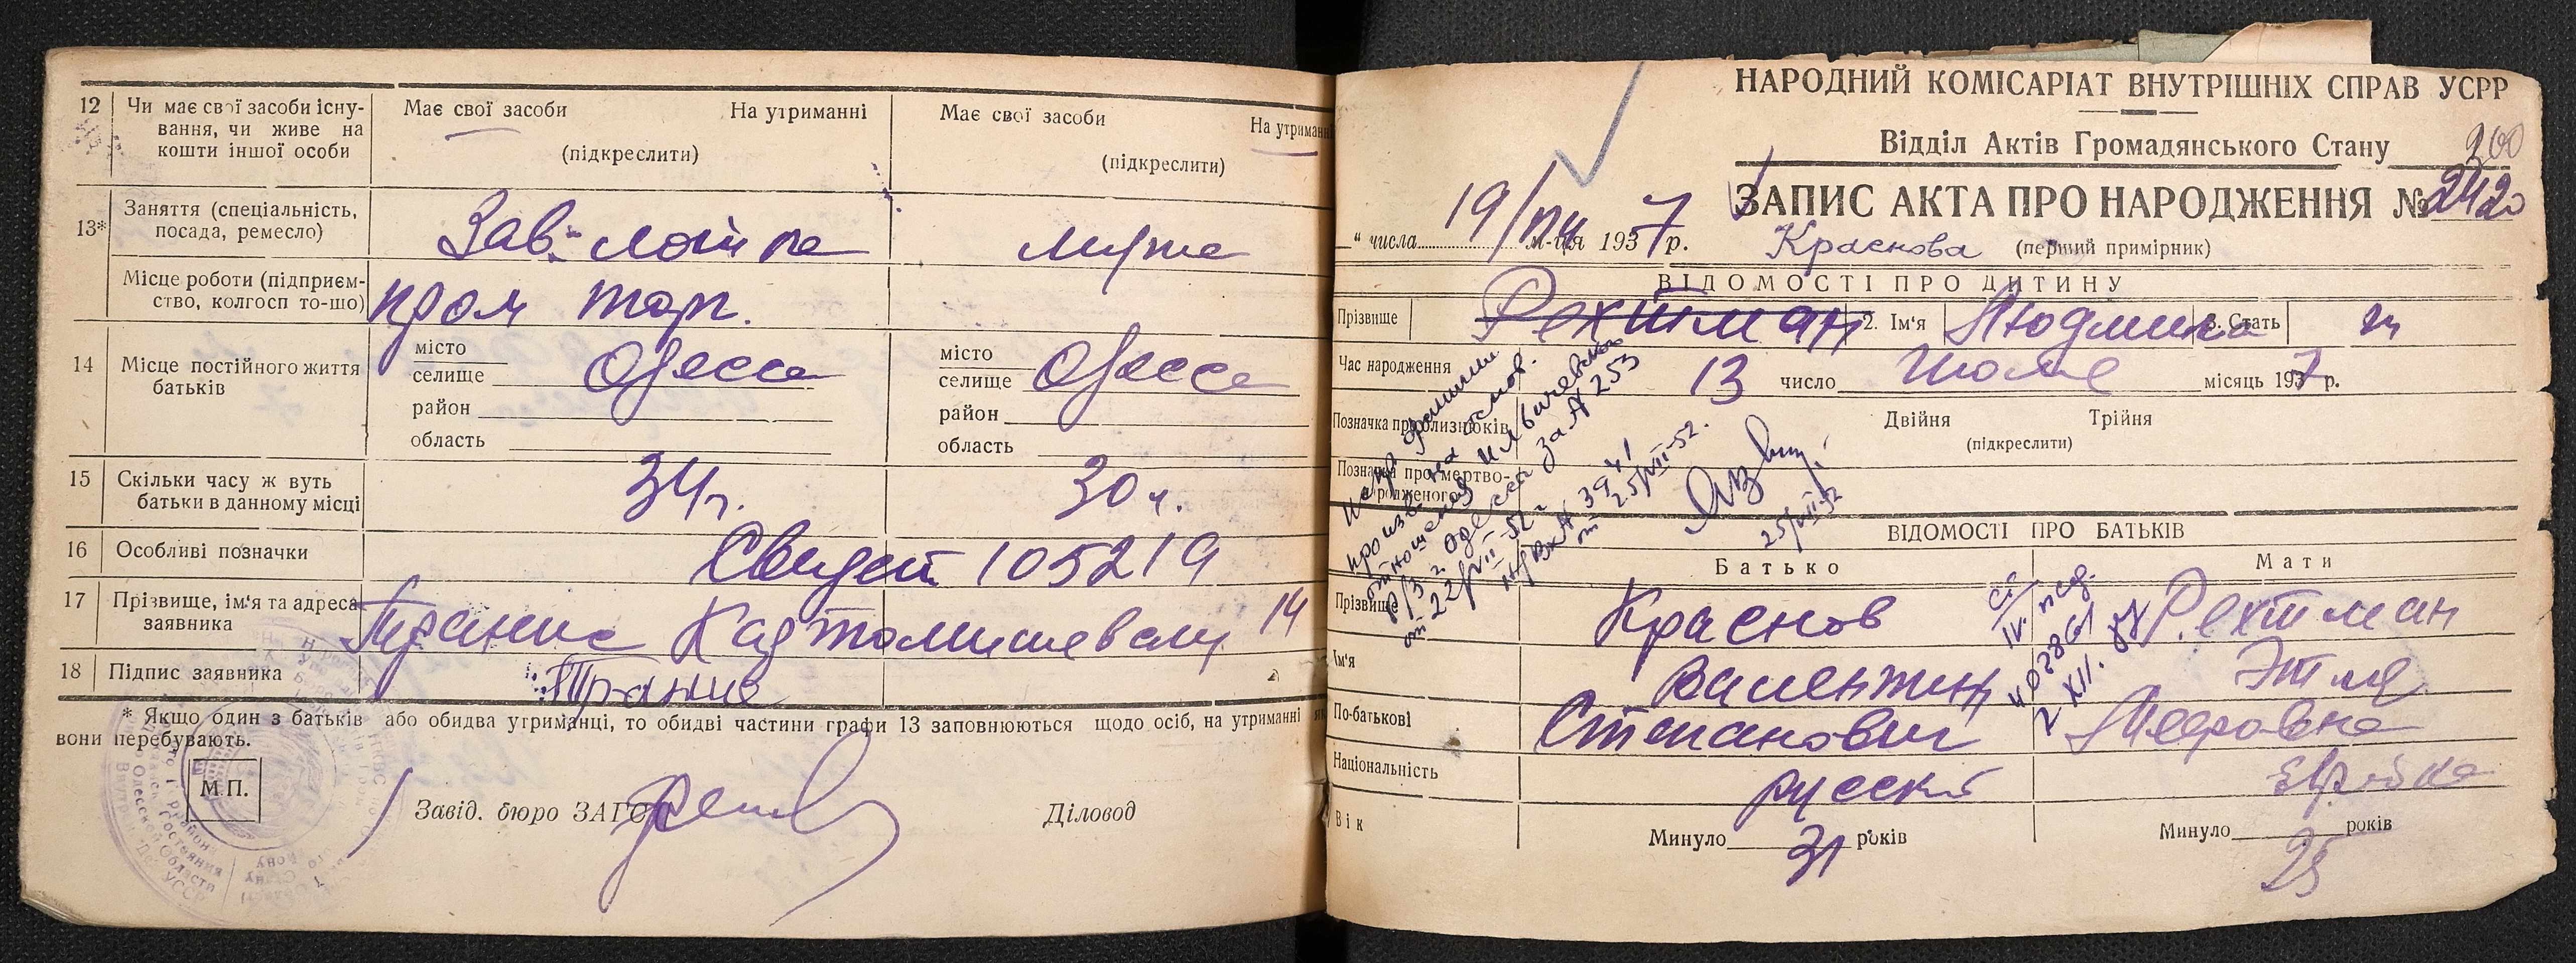 12 Чи має свої засоби існу-
вання, чи живе на
кошти іншої особи
Має свої засоби На утриманні
(підкреслити)
Має свої засоби На утриманн
(підкреслити)
13* Заняття (спеціальність,
посада, ремесло)
Зав.
Місце роботи (підприєм-
ство, колгосп то-що)
пром торг.
14 Місце постійного життя
батьків
місто
селище Одесса
район
область
місто
селище Одесса
район
область
15 Скільки часу ж вуть
батьки в данному місці
34 г. 30 г.
16 Особливі позначки
Свидет. 105219
17 Прізвище, ім'я та адреса
заявника
14
18 Підпис заявника
* Якщо один з батьків або обидва утриманці, то обидві частини графи 13 заповнюються щодо осіб, на утриманні як
вони перебувають.
М.П.
Завід. бюро ЗАГС Діловод
НАРОДНИЙ КОМІСАРІАТ ВНУТРІШНІХ СПРАВ УСРР
Відділ Актів Громадянського Стану
200
ЗАПИС АКТА ПРО НАРОДЖЕННЯ № 2420
" числа 19/VII м-ця 1937 р.
Краснова (перший примірник)
ВІДОМОСТІ ПРО ДИТИНУ
Прізвище Рехтман 2. Ім'я Людмила 3. Стать ж
Час народження 13 число Июля місяць 1937 р.
Позначка про близнюків Двійня Трійня
(підкреслити)
Позначка про мертво-
родженого
Испр. фамилии
произв. на основ.
отношения Ильичевского
Р/З г. Одесса за № 253
от 22/VII-52 г.
Вх № 3941
от 25/VII-52.
25/VII-52
ВІДОМОСТІ ПРО БАТЬКІВ
Батько Мати
Прізвище Краснов Рехтман
Ім'я Валентин Этля
По-батькові Степанович
Національність русский Еврейка
Вік Минуло 31 років Минуло 25 років